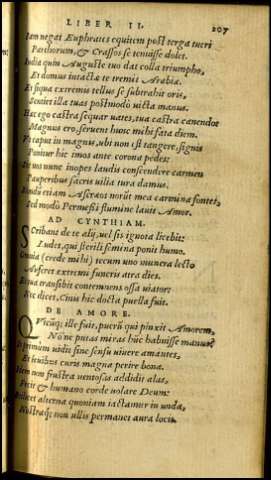 LIBER II. 207
Iam negat Euphrates equitem post terga tueri
Parthorum, & Crassos se tenuisse dolet.
India quin Auguste tuo dat colla triumpho,
Et domus intactæ te tremit Arabiæ.
Et siqua extremis tellus se subtrahit oris,
Sentiet illa tuas postmodo victa manus.
Hæc ego castra sequar uates, tua castra canendo
Magnus ero, seruent hunc mihi fata diem.
Vt caput in magnis, ubi non est tangere, signis
Ponitur hic imos ante corona pedes:
Sic nos nunc inopes laudis conscendere carmen
Pauperibus sacris uilia tura damus.
etiam Ascræos norūt mea carmina fontes,
Sed modo Permessi flumine lauit Amor.
AD CYNTHIAM.
Scribant de te alij, uel sis ignota licebit:
Ludet, qui sterili semina ponit humo.
Omnia (crede mihi) tecum uno munera lecto
Auferet extremi funeris atra dies.
Et tua transibit contemnens ossa uiator:
Nec dicet, Cinis hic docta puella fuit.
DE AMORE.
QVicūq; ille fuit, puerū qui pinxit Amorem,
Nōne putas miras hūc habuisse manus?
Is primum uidit sine sensu uiuere amantes,
Et leuibus curis magna perire bona.
Idem non frustra uentosas addidit alas,
Fecit & humano corde uolare Deum:
Scilicet alterna quoniam iactamur in unda,
Nostraq; non ullis permanet aura locis.